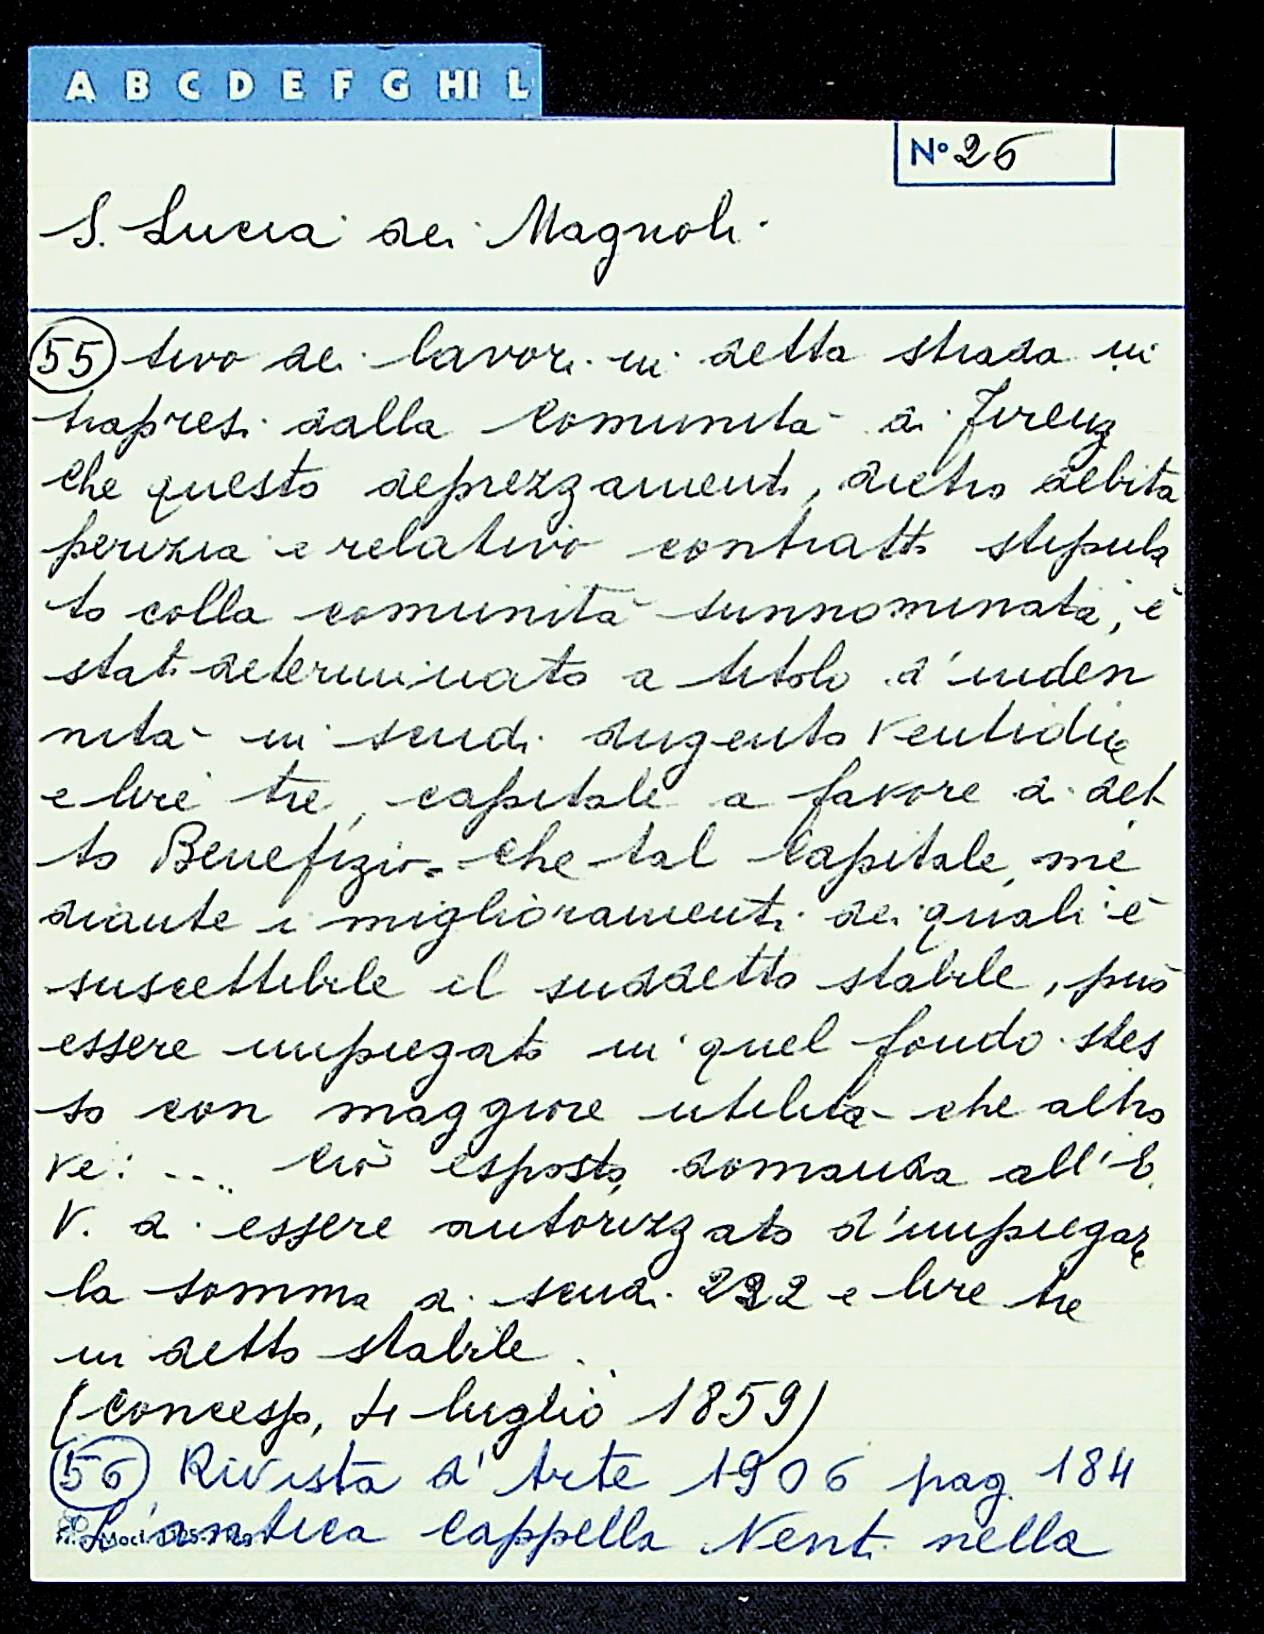 A B C D E F G HI L
N° 26
S. Lucia dei Magnoli
55 tivo dei lavori in detta strada in
trapresi dalla Comunità di Firenz
che questo deprezzamento, dietro debita
perizia e relativo contratto stipula
to colla comunità sunnominata, è
stato determinato a titolo d'inden
nità in scudi dugento ventidue
e lire tre, capitale a favore di det
to Benefizio = che tal Capitale, me
diante i miglioramenti dei quali è
suscettibile il suddetto stabile, può
essere impiegato in quel fondo stes
so con maggiore utilità che altro
ve: .... Ciò esposto, domanda all'E.
V. di essere autorizzato d'impiegare
la somma di scudi 222 e lire tre
in detto stabile.
(Concesso, 4 luglio 1859)
56 Rivista d'Arte 1906 pag. 184
L'antica Cappella Nenti nella